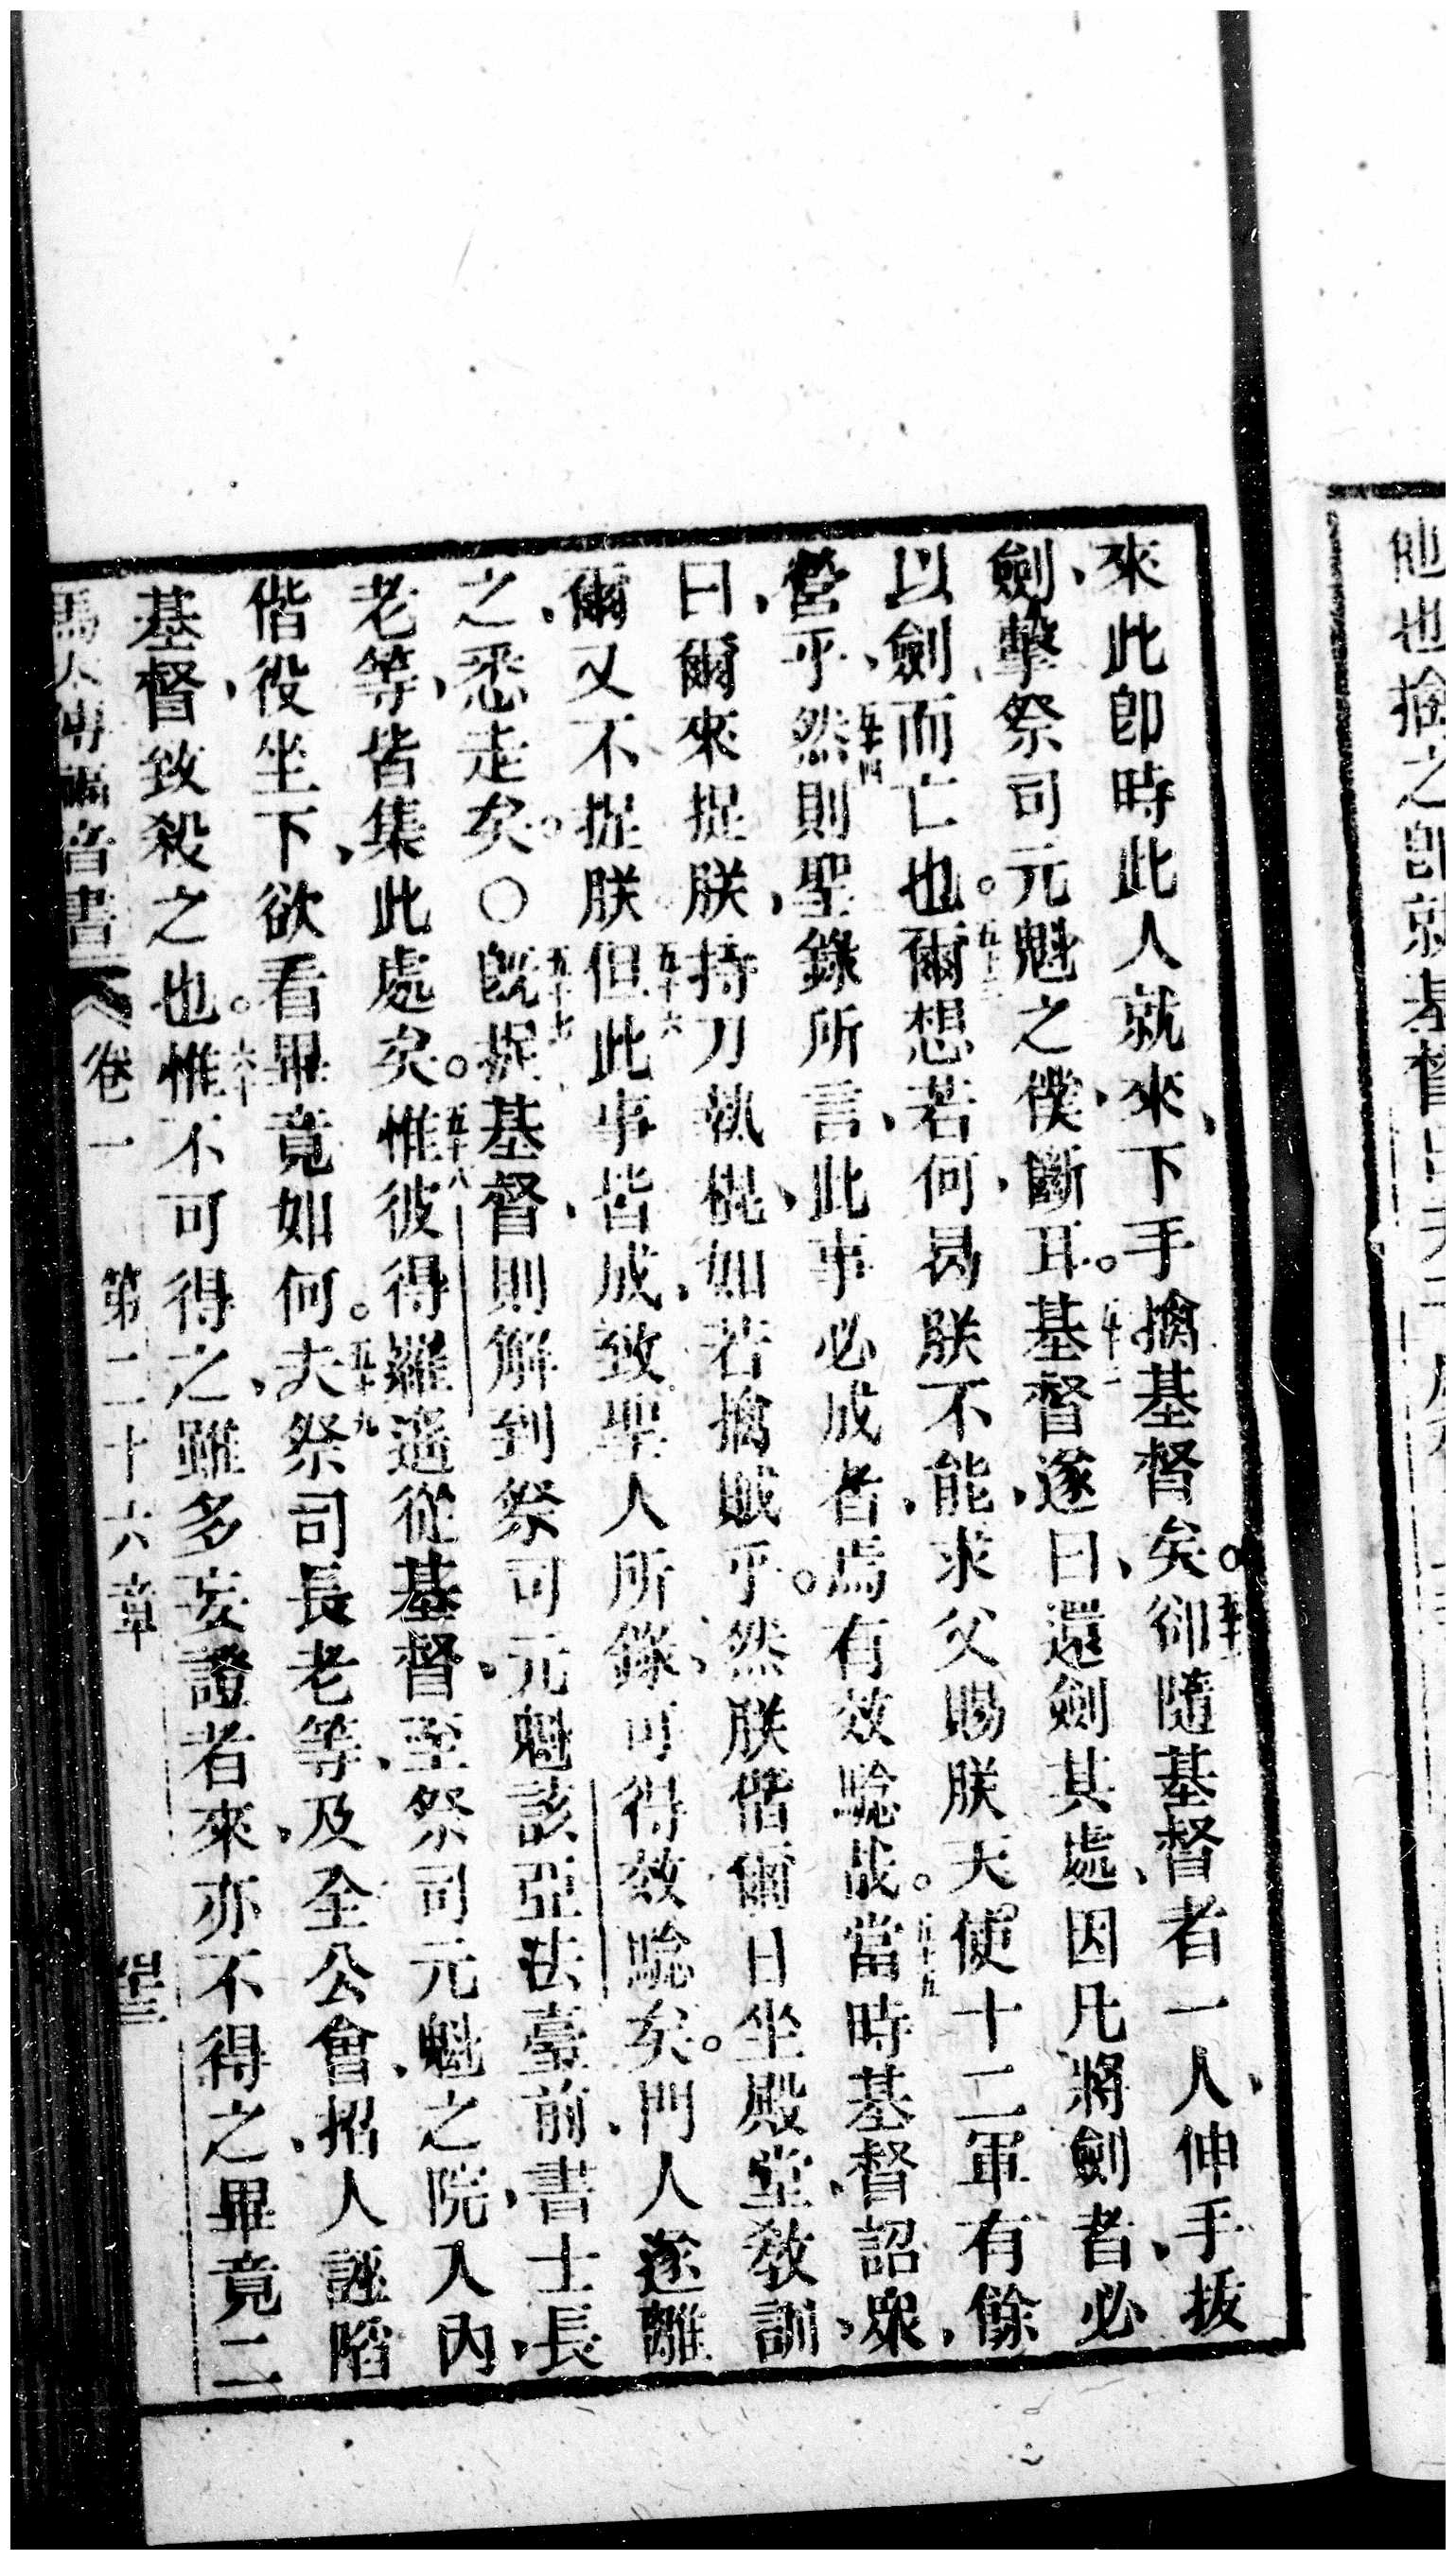 來此卽時此人就來、下手擒基督矣。卻隨基督者一人、伸手、拔
劍、擊祭司元魁之僕、斷耳。基督遂曰、還劍其處、因凡將劍者、必
以劍而亡也。爾想若何、曷朕不能、求父賜朕天使十二軍有餘、
營乎、然則聖錄所言、此事必成者、焉有效騐哉。當時基督詔眾、
曰、爾來捉朕、持刀執棍、如若擒賊乎。然朕偕爾日坐殿堂、敎訓、
爾又不捉朕但此事皆成、致聖人所錄、可得效騐矣。門人遂離
之、悉走矣。○旣捉基督、則解到祭司元魁該亞法臺前、書士長
老等、皆集此處矣。惟彼得羅遥從基督、至祭司元魁之院、入內、
偕役坐下、欲看畢竟如何。夫祭司長老等、及全公會、招人誣陷
基督、致殺之也。惟不可得之、雖多妄證者來、亦不得之、畢竟二
福音書 卷一 第二十六章